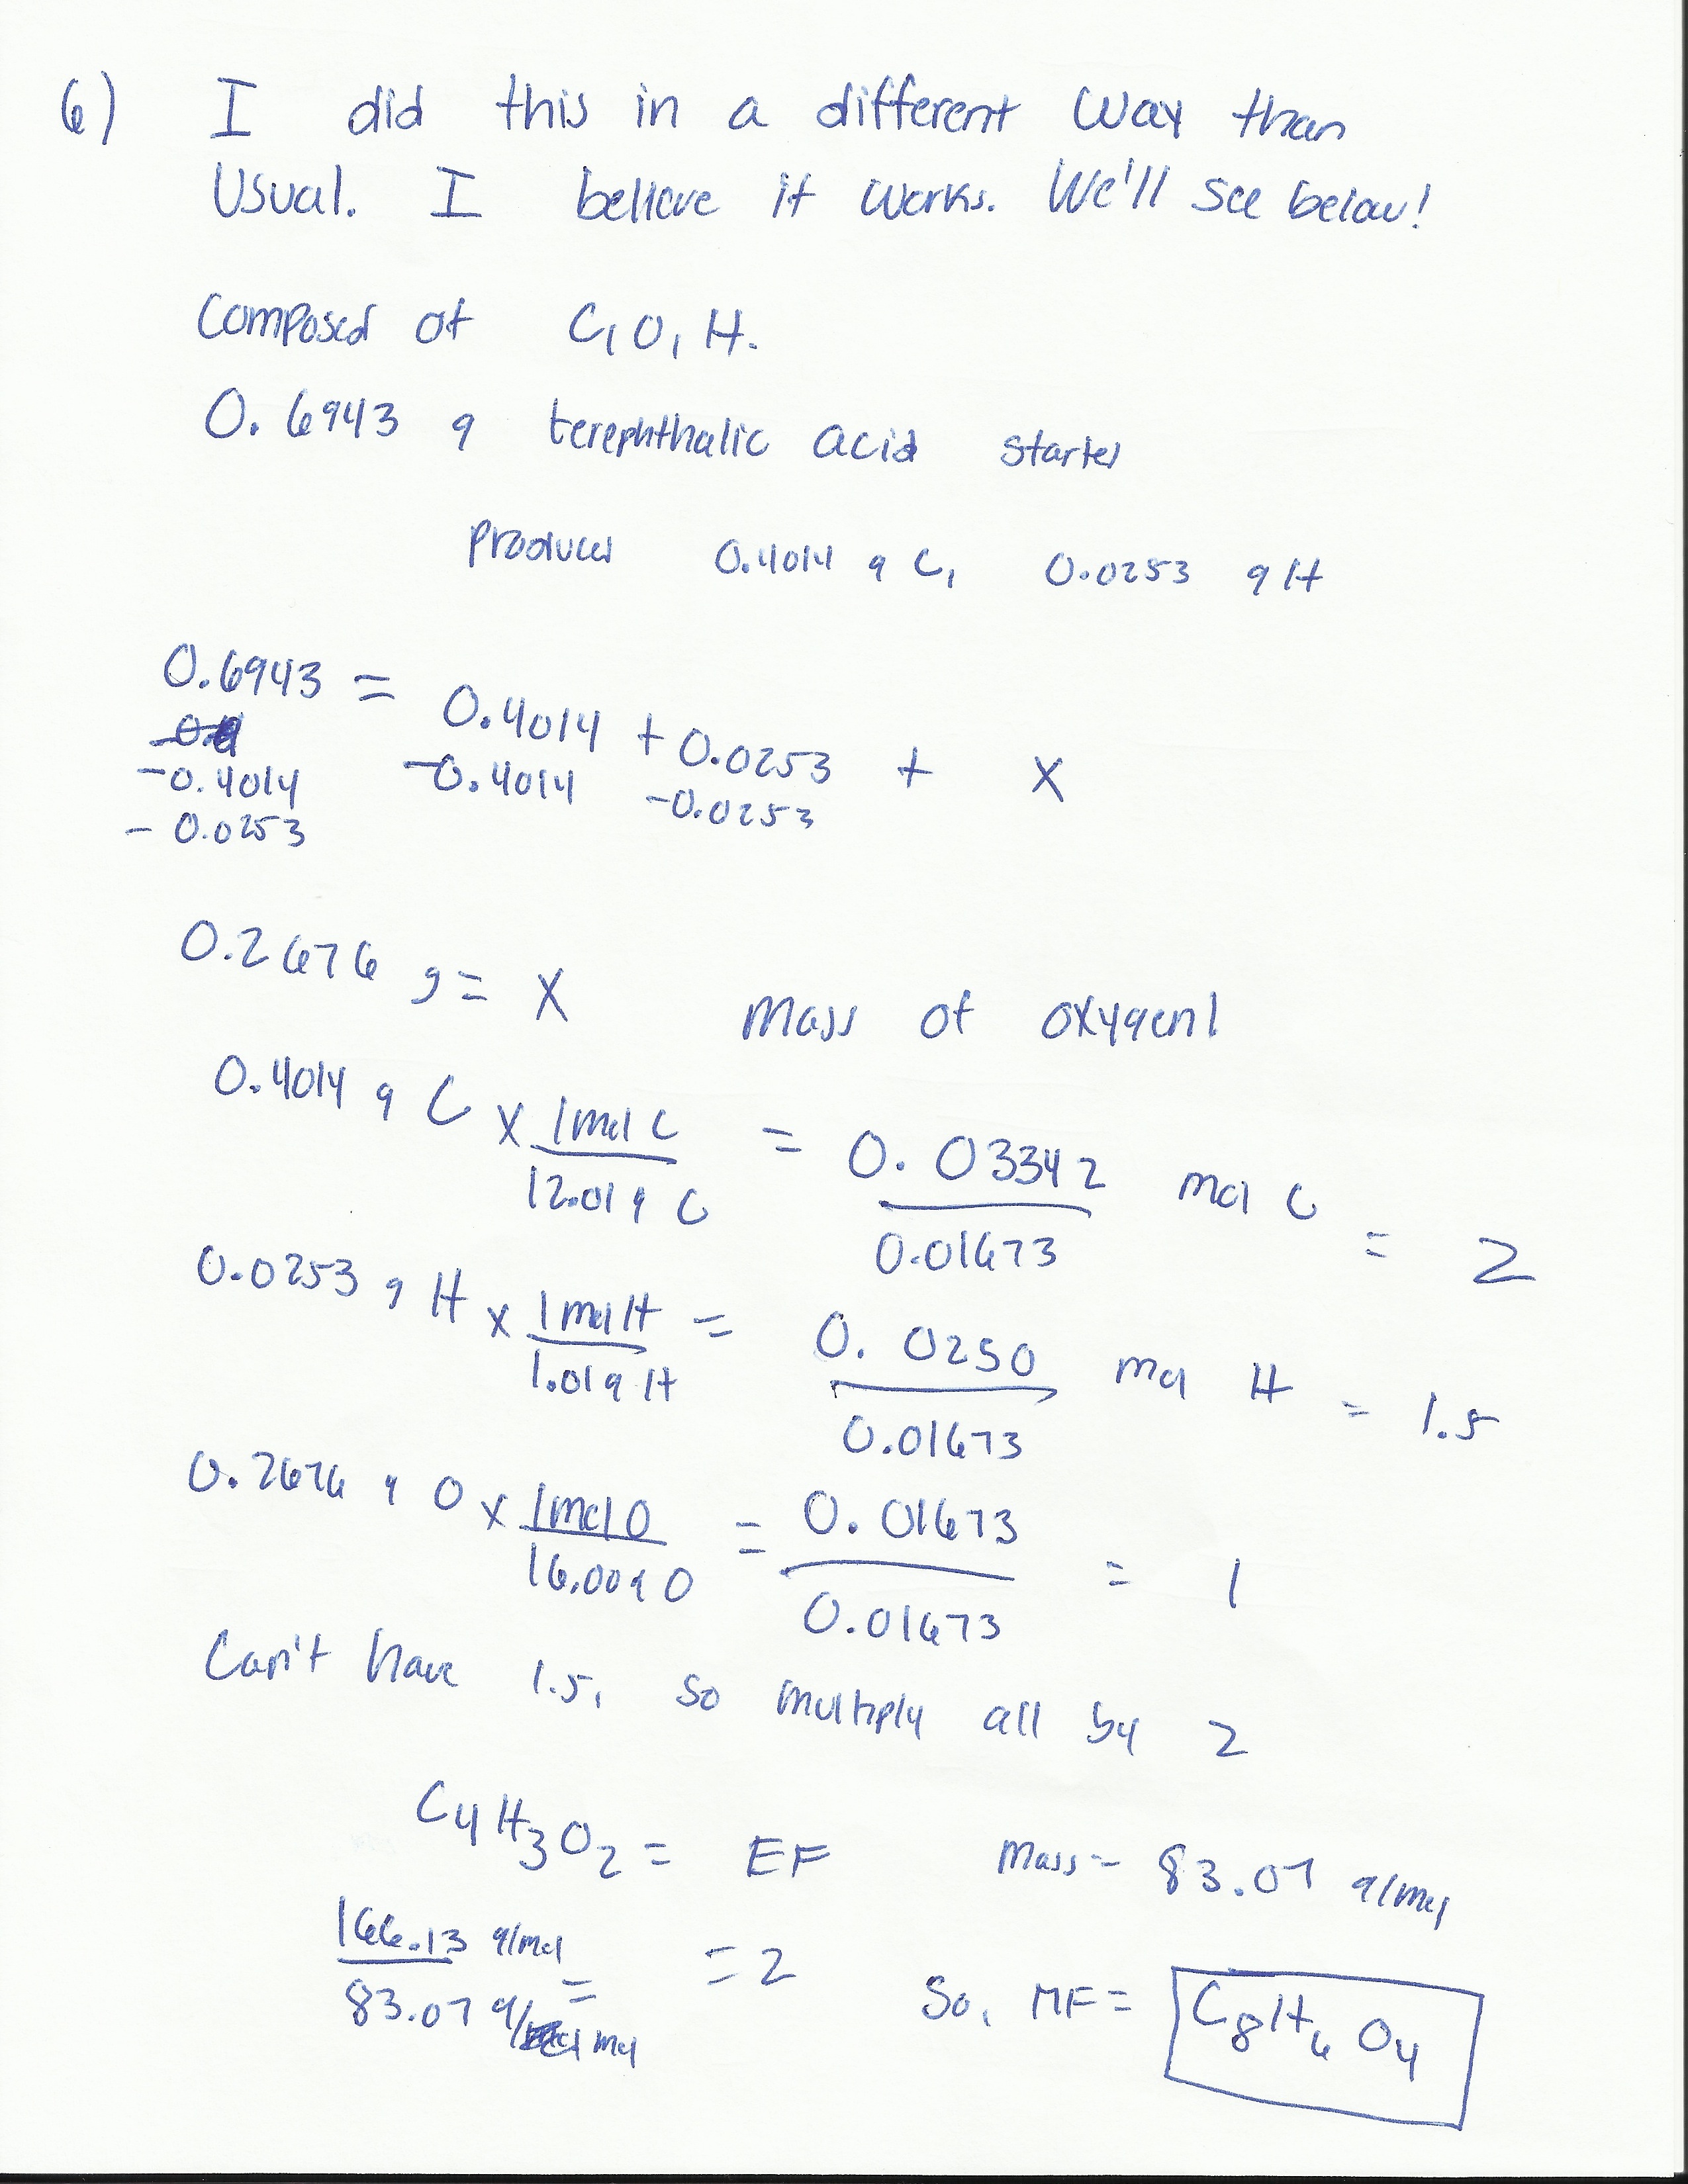 6) I did this in a different way than
usual. I believe it works. We'll see below!
Composed of C, O, H.
0.6943 g terephthalic acid starter
Produces 0.4014 g C, 0.0253 g H
0.6943 = 0.4014 + 0.0253 + X
-0.4014 -0.4014 -0.0253
-0.0253
0.2676 g = X Mass of oxygen!
0.4014 g C x 1 mol C / 12.01 g C = 0.03342 mol C / 0.01673 = 2
0.0253 g H x 1 mol H / 1.01 g H = 0.0250 mol H / 0.01673 = 1.5
0.2676 g O x 1 mol O / 16.00 g O = 0.01673 / 0.01673 = 1
Can't have 1.5, so multiply all by 2
C4H3O2 = EF Mass = 83.07 g/mol
166.13 g/mol / 83.07 g/mol = = 2 So, MF = C8H6O4